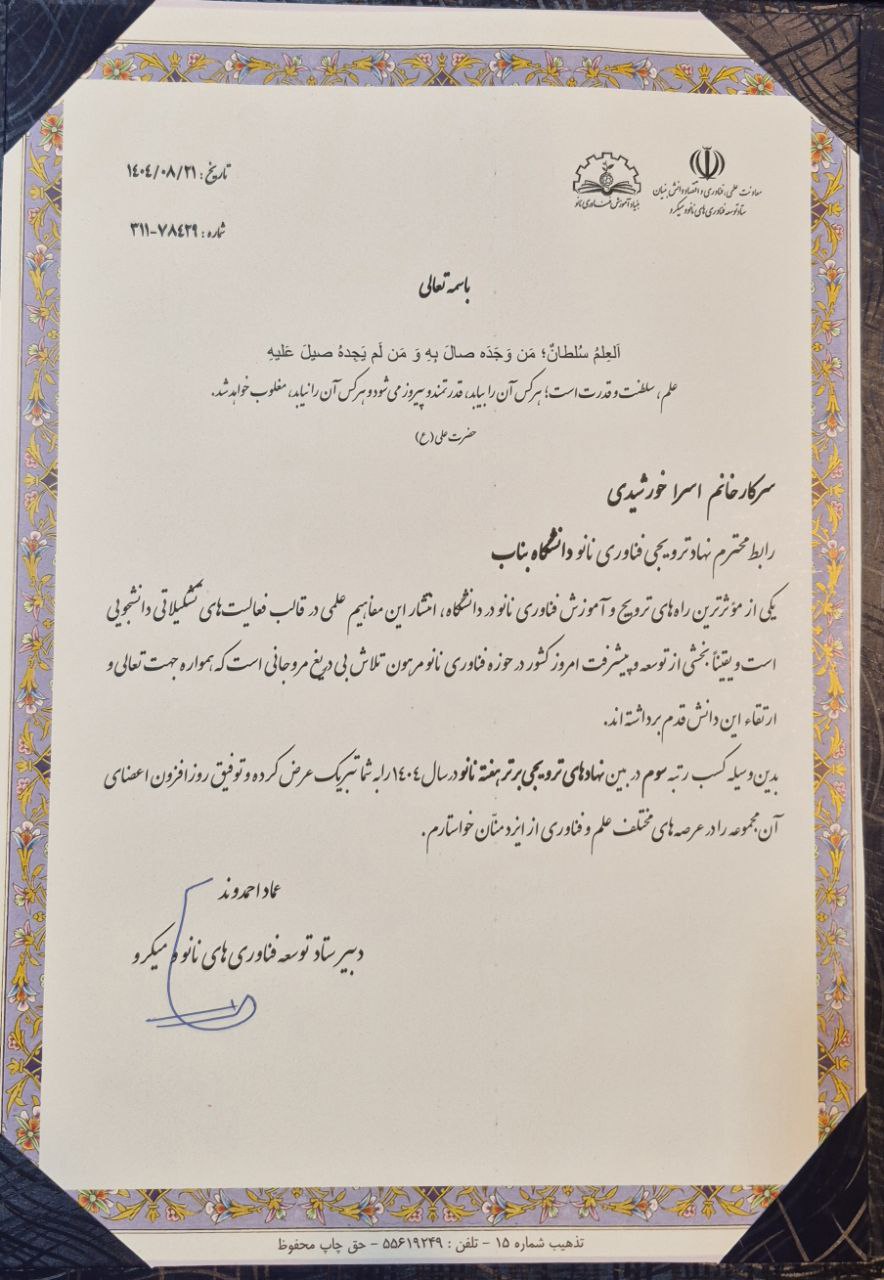 معاونت علمی، فناوری و اقتصاد دانش بنیان
ستاد توسعه فناوری های نانو و میکرو
بنیاد آموزش فناوری نانو
تاریخ: ۱۴۰۴/۰۸/۲۱
شماره: ۳۱۱-۷۸۴۲۹
باسمه تعالی
اَلعِلمُ سُلطانٌ؛ مَن وَجَدَه صالَ بِهِ وَ مَن لَم یَجِدهُ صیلَ عَلَیهِ
علم، سلطنت و قدرت است؛ هر کس آن را بیابد، قدرتمند و پیروز می شود و هر کس آن را نیابد، مغلوب خواهد شد.
حضرت علی (ع)
سرکار خانم اسرا خورشیدی
رابط محترم نهاد ترویجی فناوری نانو دانشگاه بناب
یکی از مؤثرترین راه های ترویج و آموزش فناوری نانو در دانشگاه، انتشار این مفاهیم علمی در قالب فعالیت های تشکیلاتی دانشجویی
است و یقیناً بخشی از توسعه و پیشرفت امروز کشور در حوزه فناوری نانو مرهون تلاش بی دریغ مروجانی است که همواره جهت تعالی و
ارتقاء این دانش قدم برداشته اند.
بدین وسیله کسب رتبه سوم در بین نهادهای ترویجی برتر هفته نانو در سال ۱۴۰۴ را به شما تبریک عرض کرده و توفیق روز افزون اعضای
آن مجموعه را در عرصه های مختلف علم و فناوری از ایزد منّان خواستارم.
عماد احمدوند
دبیر ستاد توسعه فناوری های نانو و میکرو
تذهیب شماره ۱۵ - تلفن : ۵۵۶۱۹۲۴۹ - حق چاپ محفوظ